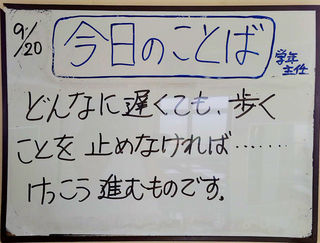 9/20
今日のことば
学年
主任
どんなに遅くても、歩く
ことを止めなければ……
けっこう進むものです。